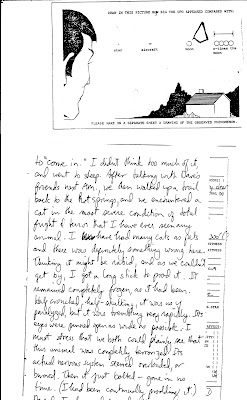 DRAW IN THIS PICTURE HOW BIG THE UFO APPEARED COMPARED WITH:
star aircraft moon
moon
PLEASE MAKE ON A SEPARATE SHEET A DRAWING OF THE OBSERVED PHENOMENON.
to "come in." I didn't think too much of it,
and went to sleep. After talking with Dave's
friends next AM, we then walked up a trail
back to the hot springs, and we encountered a
cat in the most severe condition of total
fright & terror that I have ever seen any
animal. I have had many cats as pets
and there was definitely something wrong here.
Thinking it might be rabid, and as we couldn't
get by, I got a long stick to prod it. It
remained completely frozen, as it had been.
Half crouched, half-shaking; it was as if
paralyzed, but it was trembling very rapidly. Its
eyes were opened again as wide as possible. I
must stress that we both could plainly see that
this animal was completely terrorized. Its
actual nervous system seemed
Then it just bolted - gone in no
time. (I had been continually prodding it.)